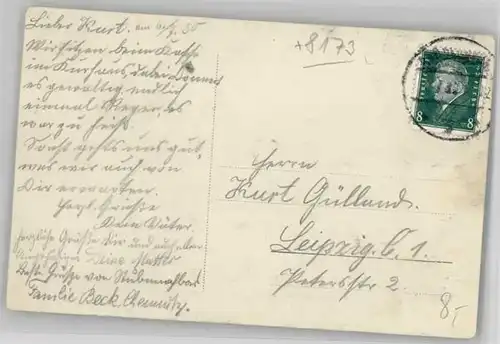 Lieber Kurt. am
Wir sitzen beim Kaffe
im Kurhaus, dabei donnert
es gewaltig, endlich
einmal Regen, es
war zu heiß.
Sonst gehts uns gut,
was wir auch von
Dir erwarten.
Herzl. Grüße
Dein Vater.
herzliche Grüße Dir und auch allen
Deine Mutter
Beste Grüsse von
Familie Beck, Chemnitz.
+8173
8 8
Herrn
Kurt Gülland.
Leipzig C. 1.
Petersstr 2.
8,-